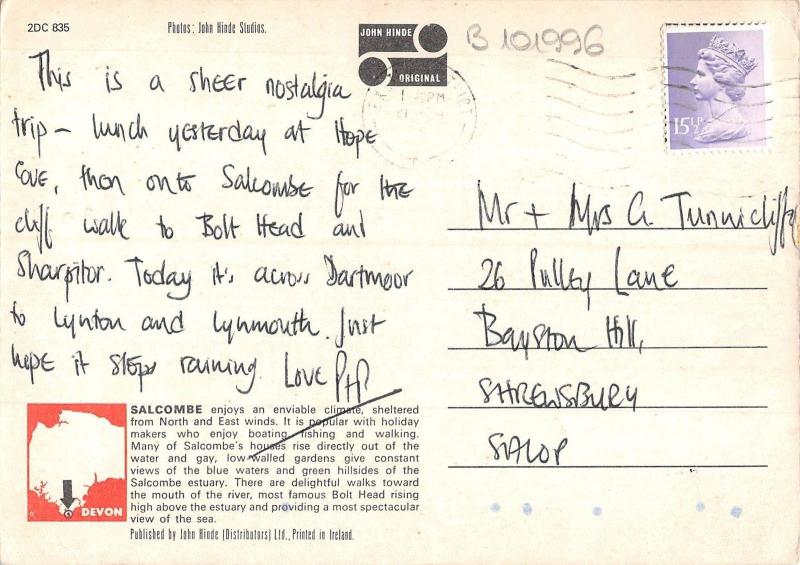 2DC 835
Photos: John Hinde Studios.
JOHN HINDE
ORIGINAL
B 101996
15½P
This is a sheer nostalgia
trip – lunch yesterday at Hope
Cove, then onto Salcombe for the
cliff walk to Bolt Head and
Sharpitor. Today it's across Dartmoor
to Lynton and Lynmouth. Just
hope it stops raining. Love PHP
Mr + Mrs G. Tunnicliffe
26 Pulley Lane
Bayston Hill,
SHREWSBURY
SALOP
DEVON
SALCOMBE enjoys an enviable climate, sheltered
from North and East winds. It is popular with holiday
makers who enjoy boating, fishing and walking.
Many of Salcombe's houses rise directly out of the
water and gay, low-walled gardens give constant
views of the blue waters and green hillsides of the
Salcombe estuary. There are delightful walks toward
the mouth of the river, most famous Bolt Head rising
high above the estuary and providing a most spectacular
view of the sea.
Published by John Hinde (Distributors) Ltd., Printed in Ireland.